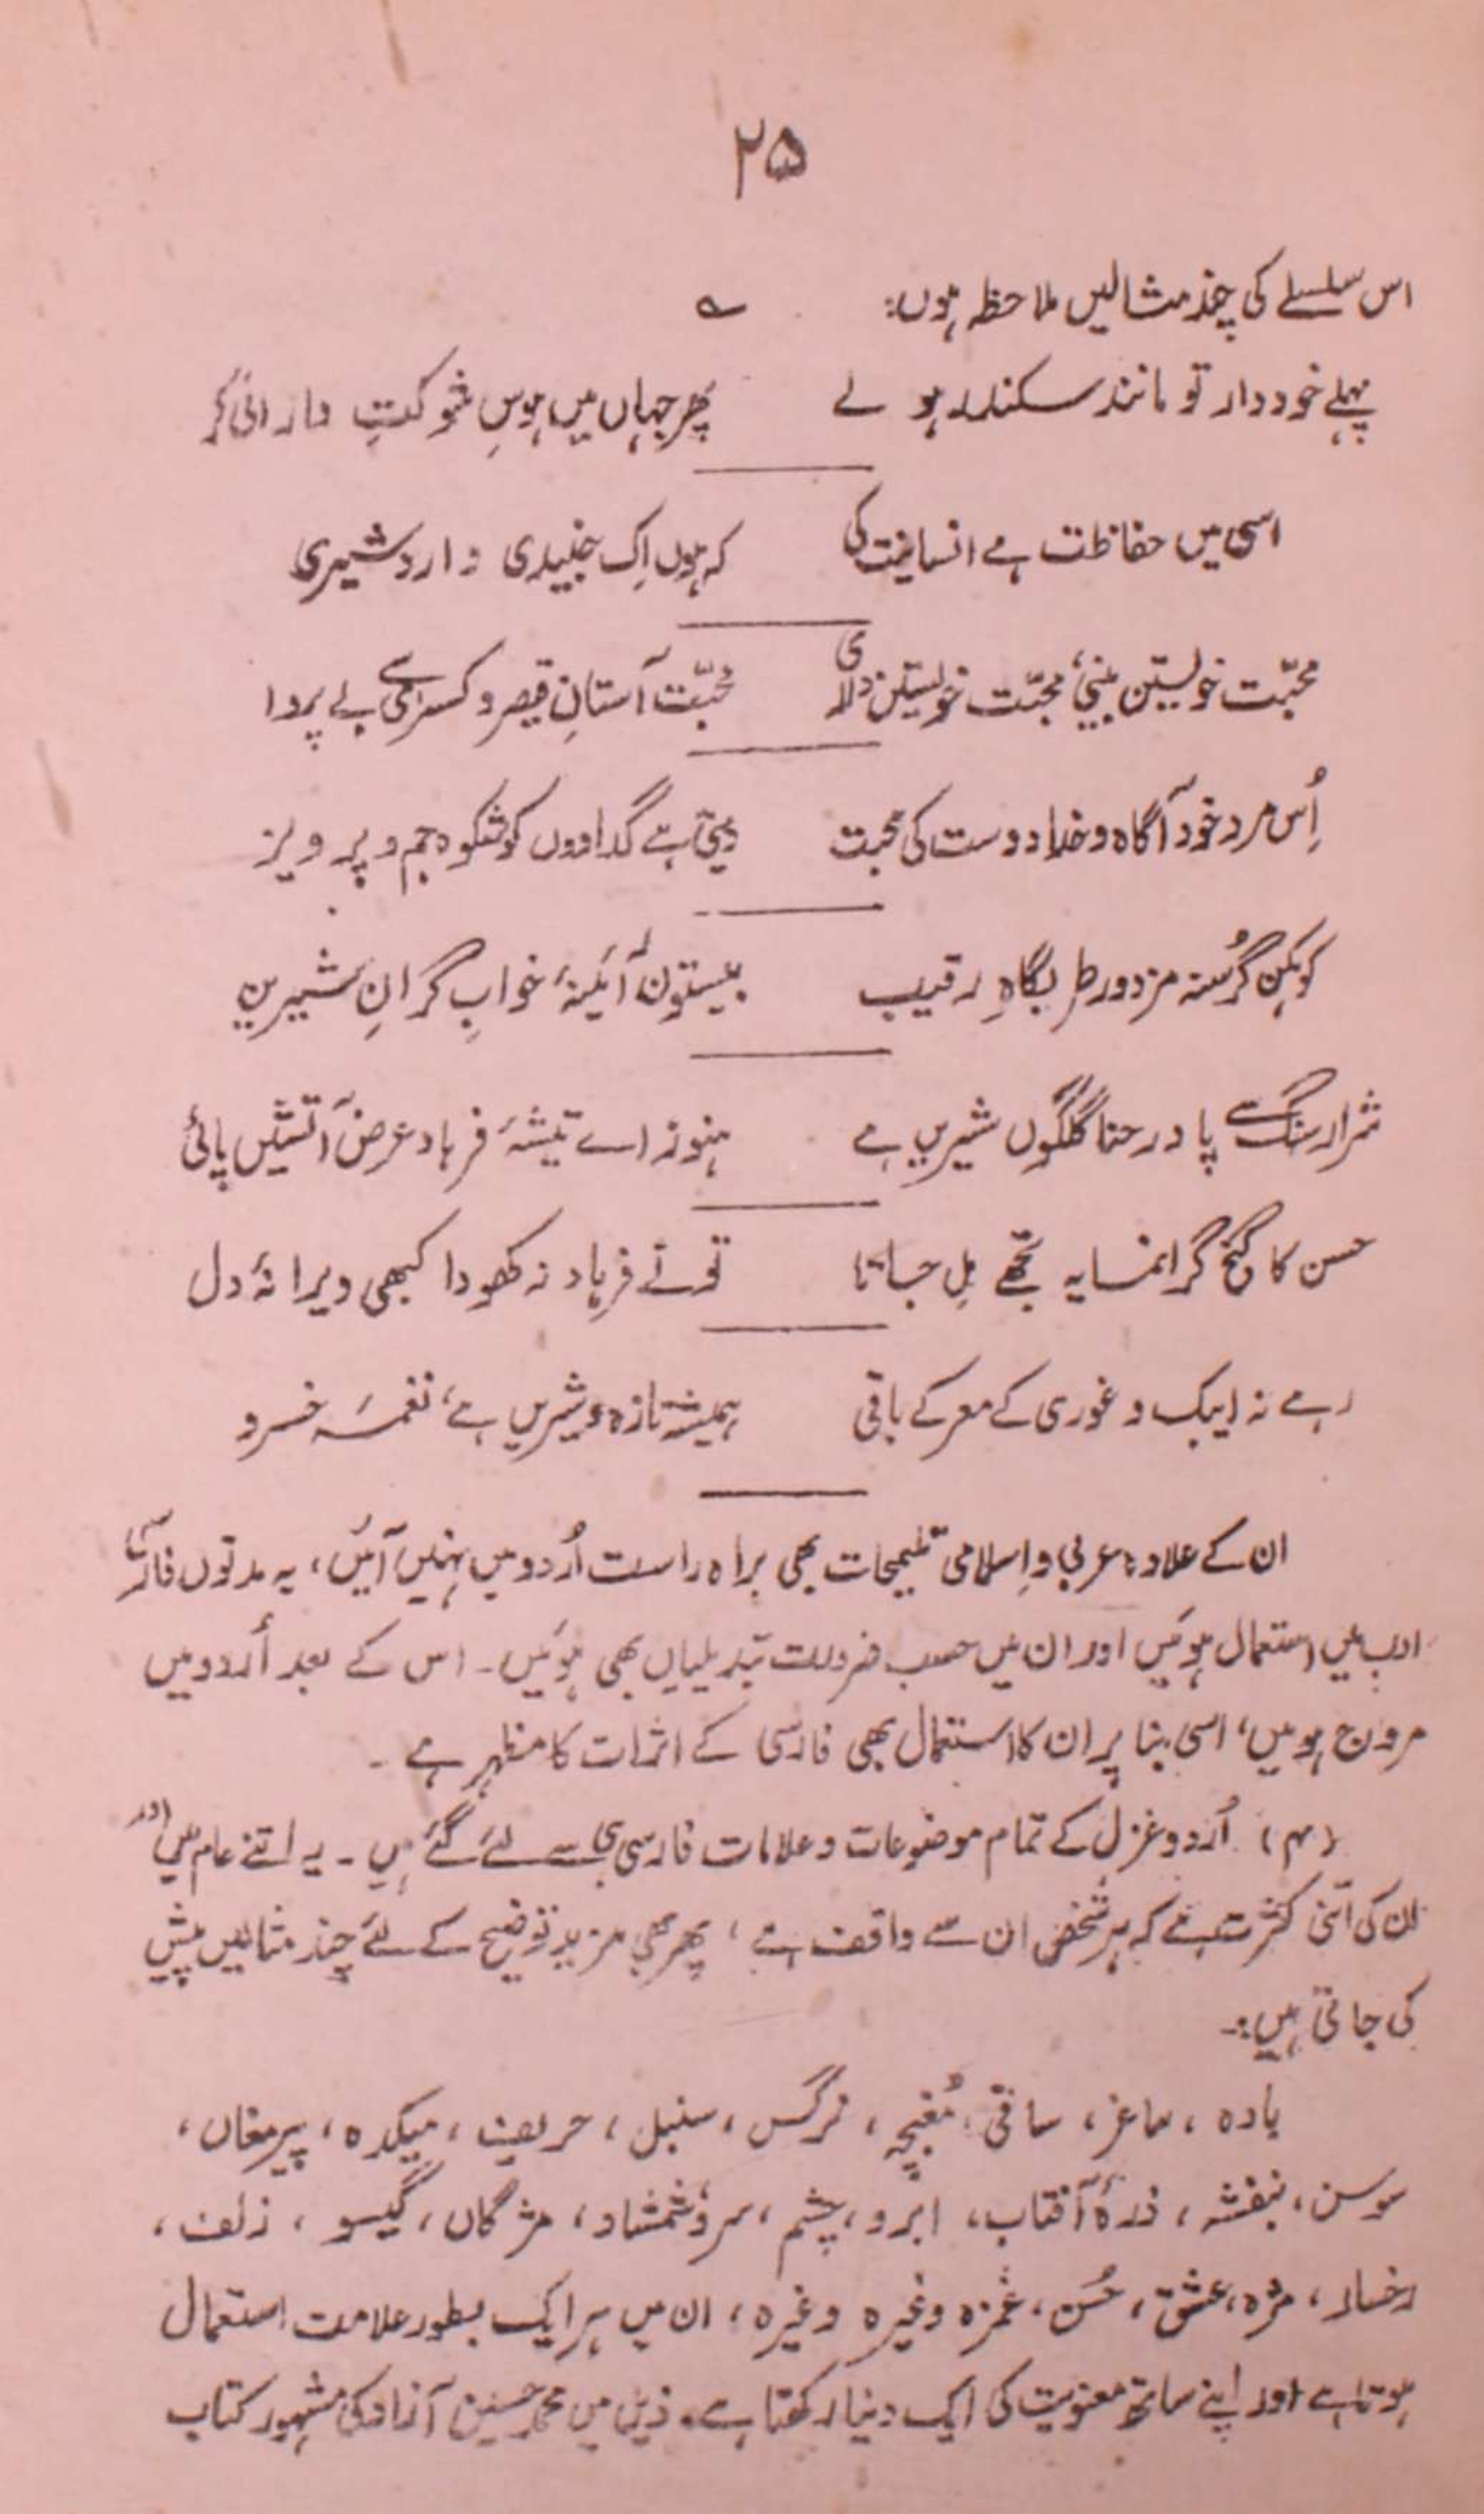 ۲۵
اس سلسلے کی چند مثالیں ملاحظہ ہوں: ؎
پہلے خوددار تو مانند سکندر ہو لے پھر جہاں میں ہوسِ شوکتِ دارائی کر
اسی میں حفاظت ہے انسانیت کی کہ ہوں اِک جنیدی و اردشیری
محبّت خویشتن بینی، محبّت خویشتن داری محبّت آستانِ قیصر و کسریٰ سے بے پروا
اُس مرد خود آگاہ و خدا دوست کی صحبت دیتی ہے گداؤوں کو شکوہ جم و پرویز
کوہکن گرُسنہ مزدور طربگاہِ رقیب بیستوں آئینۂ خوابِ گرانِ شیریں
شرار سنگ سے پا در حنا گلگوں شیریں ہے ہنوز اے تیشۂ فرہاد عرض آتشیں پائی
حسن کا گنج گرانمایہ تجھے مِل جاتا تو نے فرہاد نہ کھودا کبھی ویرانۂ دل
رہے نہ ایبک و غوری کے معرکے باقی ہمیشہ تازہ و شیریں ہے، نغمۂ خسرو
ان کے علاوہ عربی و اِسلامی تلمیحات بھی براہ راست اُردو میں نہیں آئیں، یہ مدتوں فارسی
ادب میں استعمال ہوئیں اور ان میں حسب ضرورت تبدیلیاں بھی ہوئیں۔ اس کے بعد اُردو میں
مروج ہوئیں، اسی بنا پر ان کا استعمال بھی فارسی کے اثرات کا مظہر ہے۔
(۴) اُردو غزل کے تمام موضوعات و علامات فارسی ہی سے لئے گئے ہیں۔ یہ اتنے عام ہیں اور
ان کی اتنی کثرت ہے کہ ہر شخص ان سے واقف ہے، پھر بھی مزید توضیح کے لئے چند مثالیں پیش
کی جاتی ہیں:۔
بادہ، ساغر، ساقی، مُغبچہ، نرگس، سنبل، حریف، میکدہ، پیر مغاں،
سوسن، بنفشہ، ذرۂ آفتاب، ابرو، چشم، سرو، شمشاد، مژگاں، گیسو، زلف،
رخسار، مژہ، عشق، حُسن، غمزہ وغیرہ وغیرہ، ان میں ہر ایک بطور علامت استعمال
ہوتا ہے اور اپنے ساتھ معنویت کی ایک دنیا رکھتا ہے۔ ذیل میں محمد حسین آزاد کی مشہور کتاب